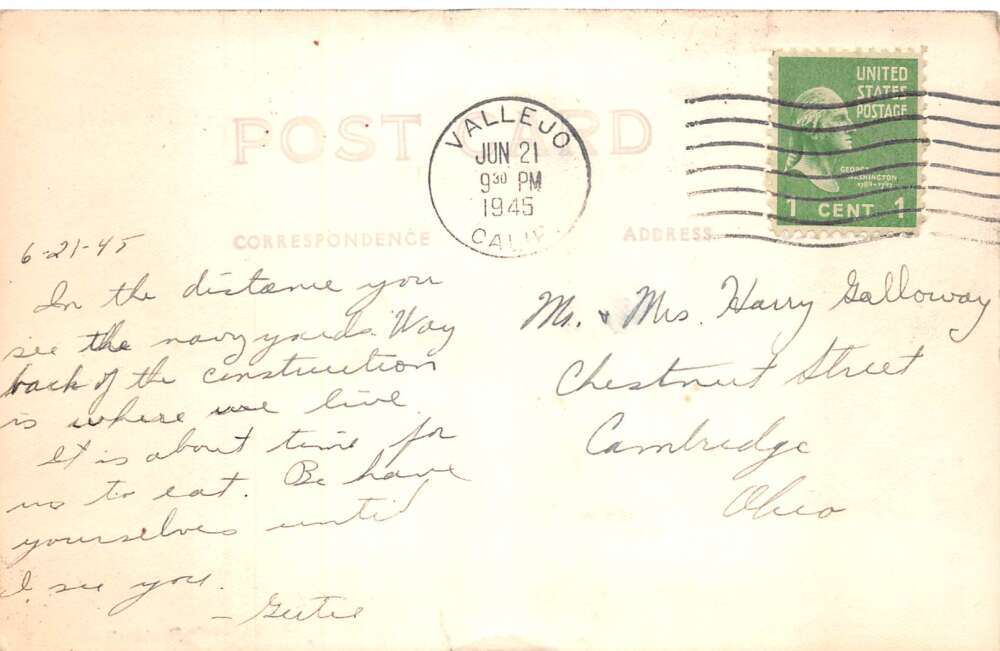 POST CARD
VALLEJO
JUN 21
9 30 PM
1945
CALIF
UNITED
STATES
POSTAGE
GEORGE
WASHINGTON
1 CENT 1
CORRESPONDENCE
ADDRESS
6-21-45
In the distance you
see the navy yards. Way
back of the construction
is where we live.
It is about time for
us to eat. Be have
yourselves until
I see you.
Mr. & Mrs. Harry Galloway
Chestnut Street
Cambridge
Ohio